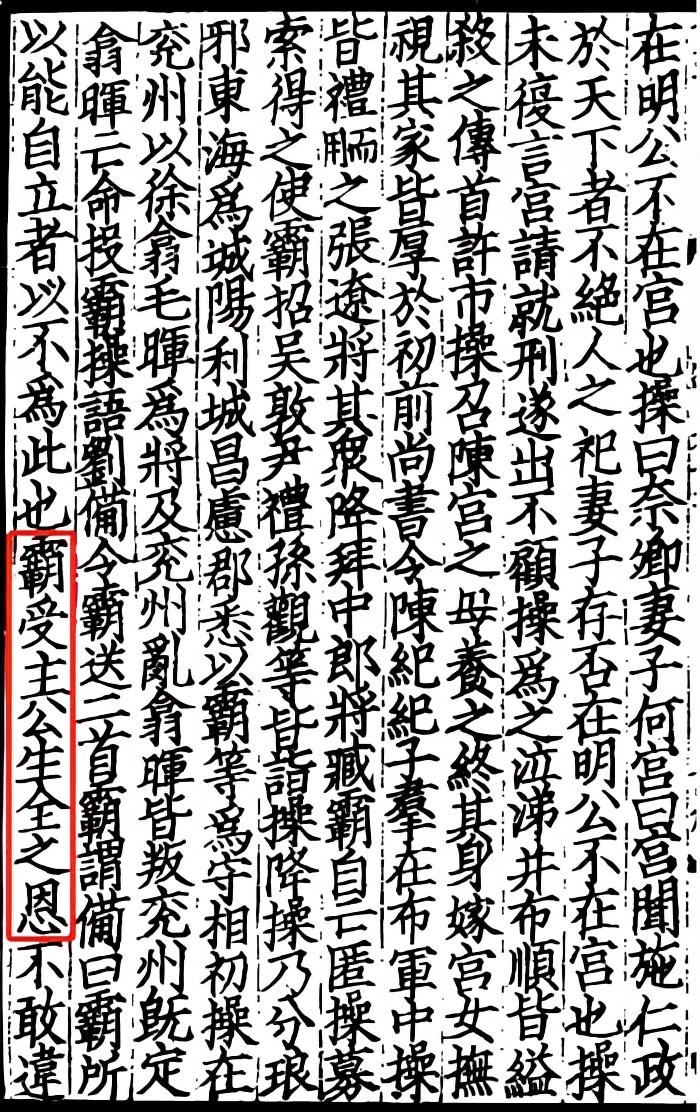 在明公不在宮也操曰奈卿妻子何宮曰宮聞施仁政
於天下者不絕人之祀妻子存否在明公不在宮也操
未復言宮請就刑遂出不顧操為之泣涕并布順皆縊
殺之傳首許市操召陳宮之母養之終其身嫁宮女撫
視其家皆厚於初前尚書令陳紀紀子羣在布軍中操
皆禮而用之張遼將其衆降拜中郎將臧霸自亡匿操募
索得之使霸招吳敦尹禮孫觀等皆詣操降操乃分琅
邪東海為城陽利城昌慮郡悉以霸等為守相初操在
兗州以徐翕毛暉為將及兗州亂翕暉皆叛兗州既定
翕暉亡命投霸操語劉備令霸送二首霸謂備曰霸所
以能自立者以不為此也霸受主公生全之恩不敢違